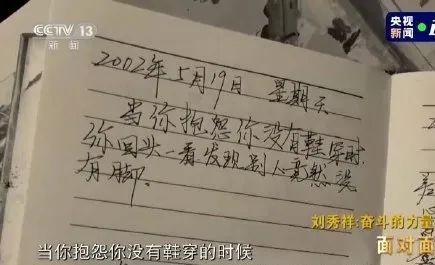 CCTV 13
新闻
央视
新闻
2002年5月19日 星期天
当你抱怨你没有鞋穿时,
你回头一看发现别人竟然没
有脚.
刘秀祥:奋斗的力量
面对面
当你抱怨你没有鞋穿的时候